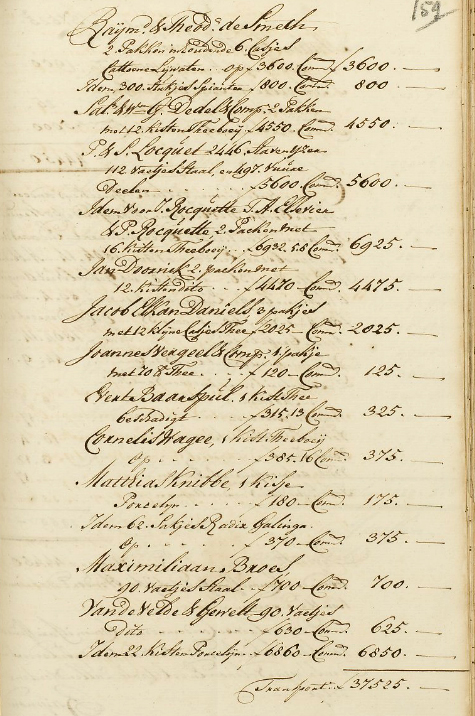 159
Raijm: & Theod: de Smeth
2 Pakken inhoudende 6 Casjes
Cattoene Lijwaten op f 3600. Com: f 3600.
Idem 300. Stukjes Spiauter f 800. Com: 800
G. Dedel & Comp. 2 Pakken
met 12 kisten Theeboeij f 4550. Com: 4550.
P. & S. Locquet 2446. Staven Yzer
112 vaetjes Staal, en 497. Vuure
Deelen . . . f 5600 Com: 5600.
Idem voor J. Rocquette T. A. Elzevier
& P. Rocquette 2 Packen met
16. kisten Theeboeij . . f 6932.5.8 Com: 6925.
Jan Doornik 2. packen met
12. kisten dito . . f 4470 Com: 4475.
Jacob Elkan Daniels 3 pakjes
met 12 kleine Casjes Thee f 2025 Com: 2025.
Joannes Vergeel & Comp. 1 pakje
met 70 ℔ Thee . . . f 120 Com: 125.
Evert Baanspiul. 1 kist Thee
beschadigt . . f 315.13 Com: 325.
Cornelis Wagee, 1 kist Theeboeij
op . . . f 385.16 Com: 375.
Matthias Knibbe, 1 kisje
Porcelyn . . . f 180 Com: 175.
Idem 62. Sakjes Radix Galinga
op . . . f 370 Com: 375.
Maximiliaan Broes
90. vaetjes Staal . . f 700 Com: 700.
Van de Velde & Gevelt 90. Vaetjes
dito . . . f 630 Com: 625.
Idem 22 Kisten Porcelyn . f 6860 Com: 6850.
Transport f 37525.